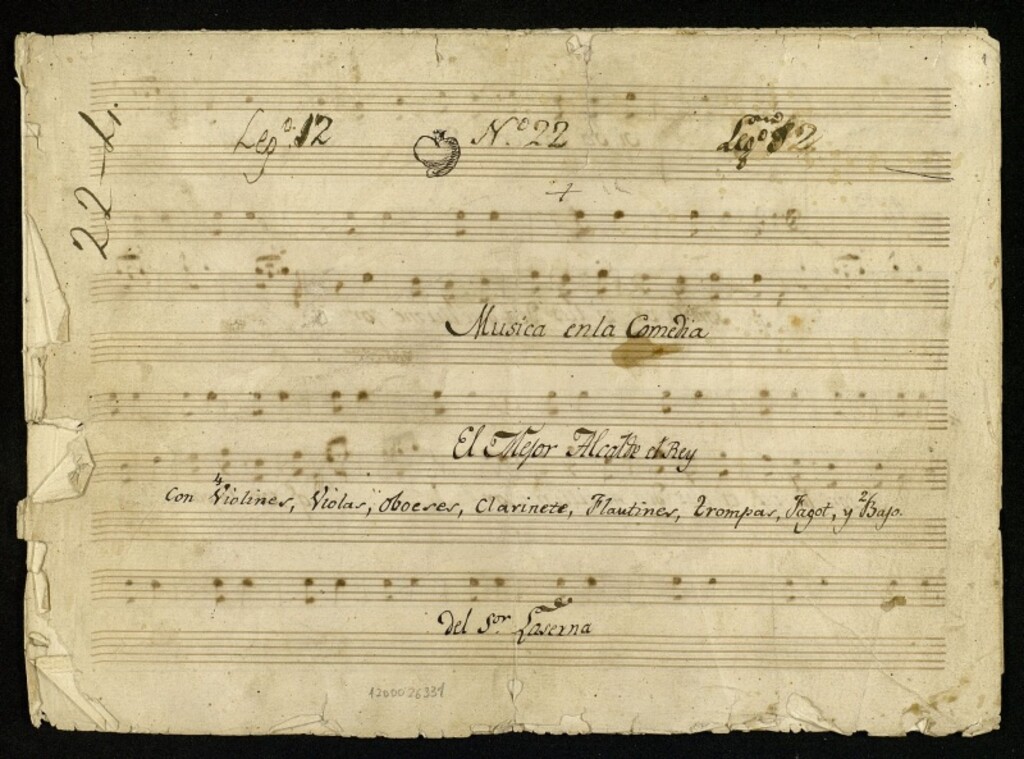 1
Leg.º 12 N.º 22 Leg.º 12
22 - L.
Musica en la Comedia
El Mejor Alcalde el Rey
Con 4 Violines, Violas, oboeses, Clarinete, Flautines, Trompas, Fagot, y 2 Bajo.
del S.or Laserna
1200026331